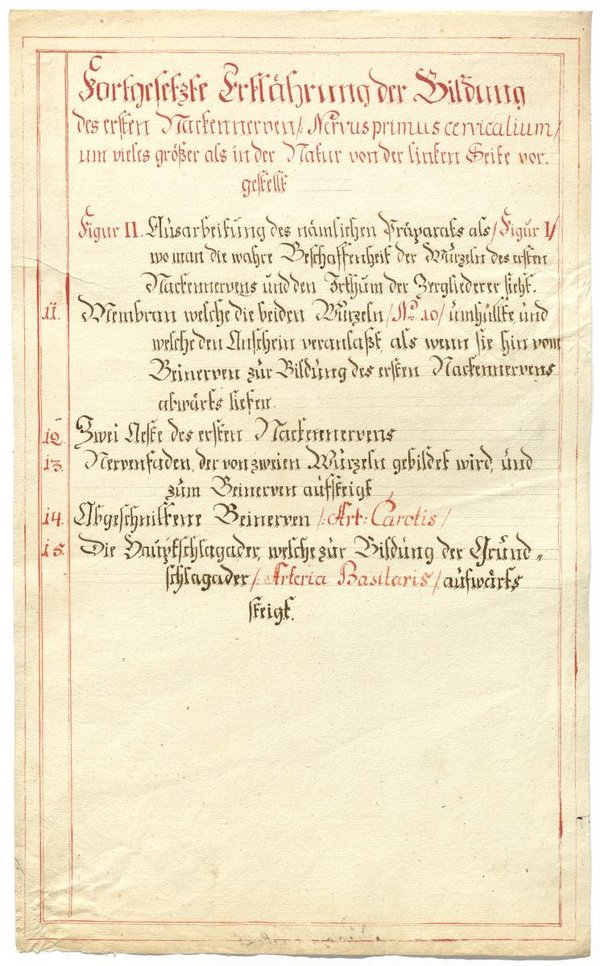 Fortgesetzte Erklährung der Bildung
des ersten Nackennerven /: Nervus primus cervicalium /
um vieles größer als in der Natur von der linken Seite vor-
gestellt
Figur II. Ausarbeitung des nämlichen Präparats als /Figur I/
wo man die wahre Beschaffenheit der Wurzeln des ersten
Nackennervens und den Irthum der Zergliederer sieht.
11. Membran welche die beiden Wurzeln /No. 10/ umhüllte und
welche den Anschein veranlaßt, als wenn sie hin vom
Beinerven zur Bildung des ersten Nackennervens
abwärts liefen.
12. Zwei Aeste des ersten Nackennervens
13. Nervenfaden, der von zweien Wurzeln gebildet wird, und
zum Beinerven aufsteigt
14. Abgeschnittene Beinerven /: Art: Carotis /
15. Die Hauptschlagader, welche zur Bildung der Grund-
schlagader /: Arteria Basilaris /: aufwärts
steigt.